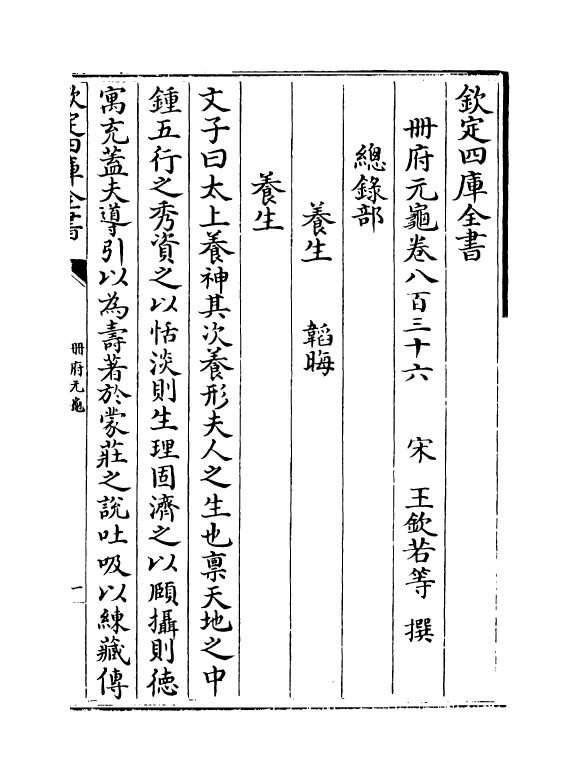 欽定四庫全書
冊府元龜卷八百三十六　宋　王欽若等　撰
總錄部
養生　韜晦
養生
文子曰太上養神其次養形夫人之生也禀天地之中
鍾五行之秀資之以恬淡則生理固濟之以頤攝則徳
寓充蓋夫導引以為壽著於蒙莊之說吐吸以練藏傳
欽定四庫全書
冊府元龜
一